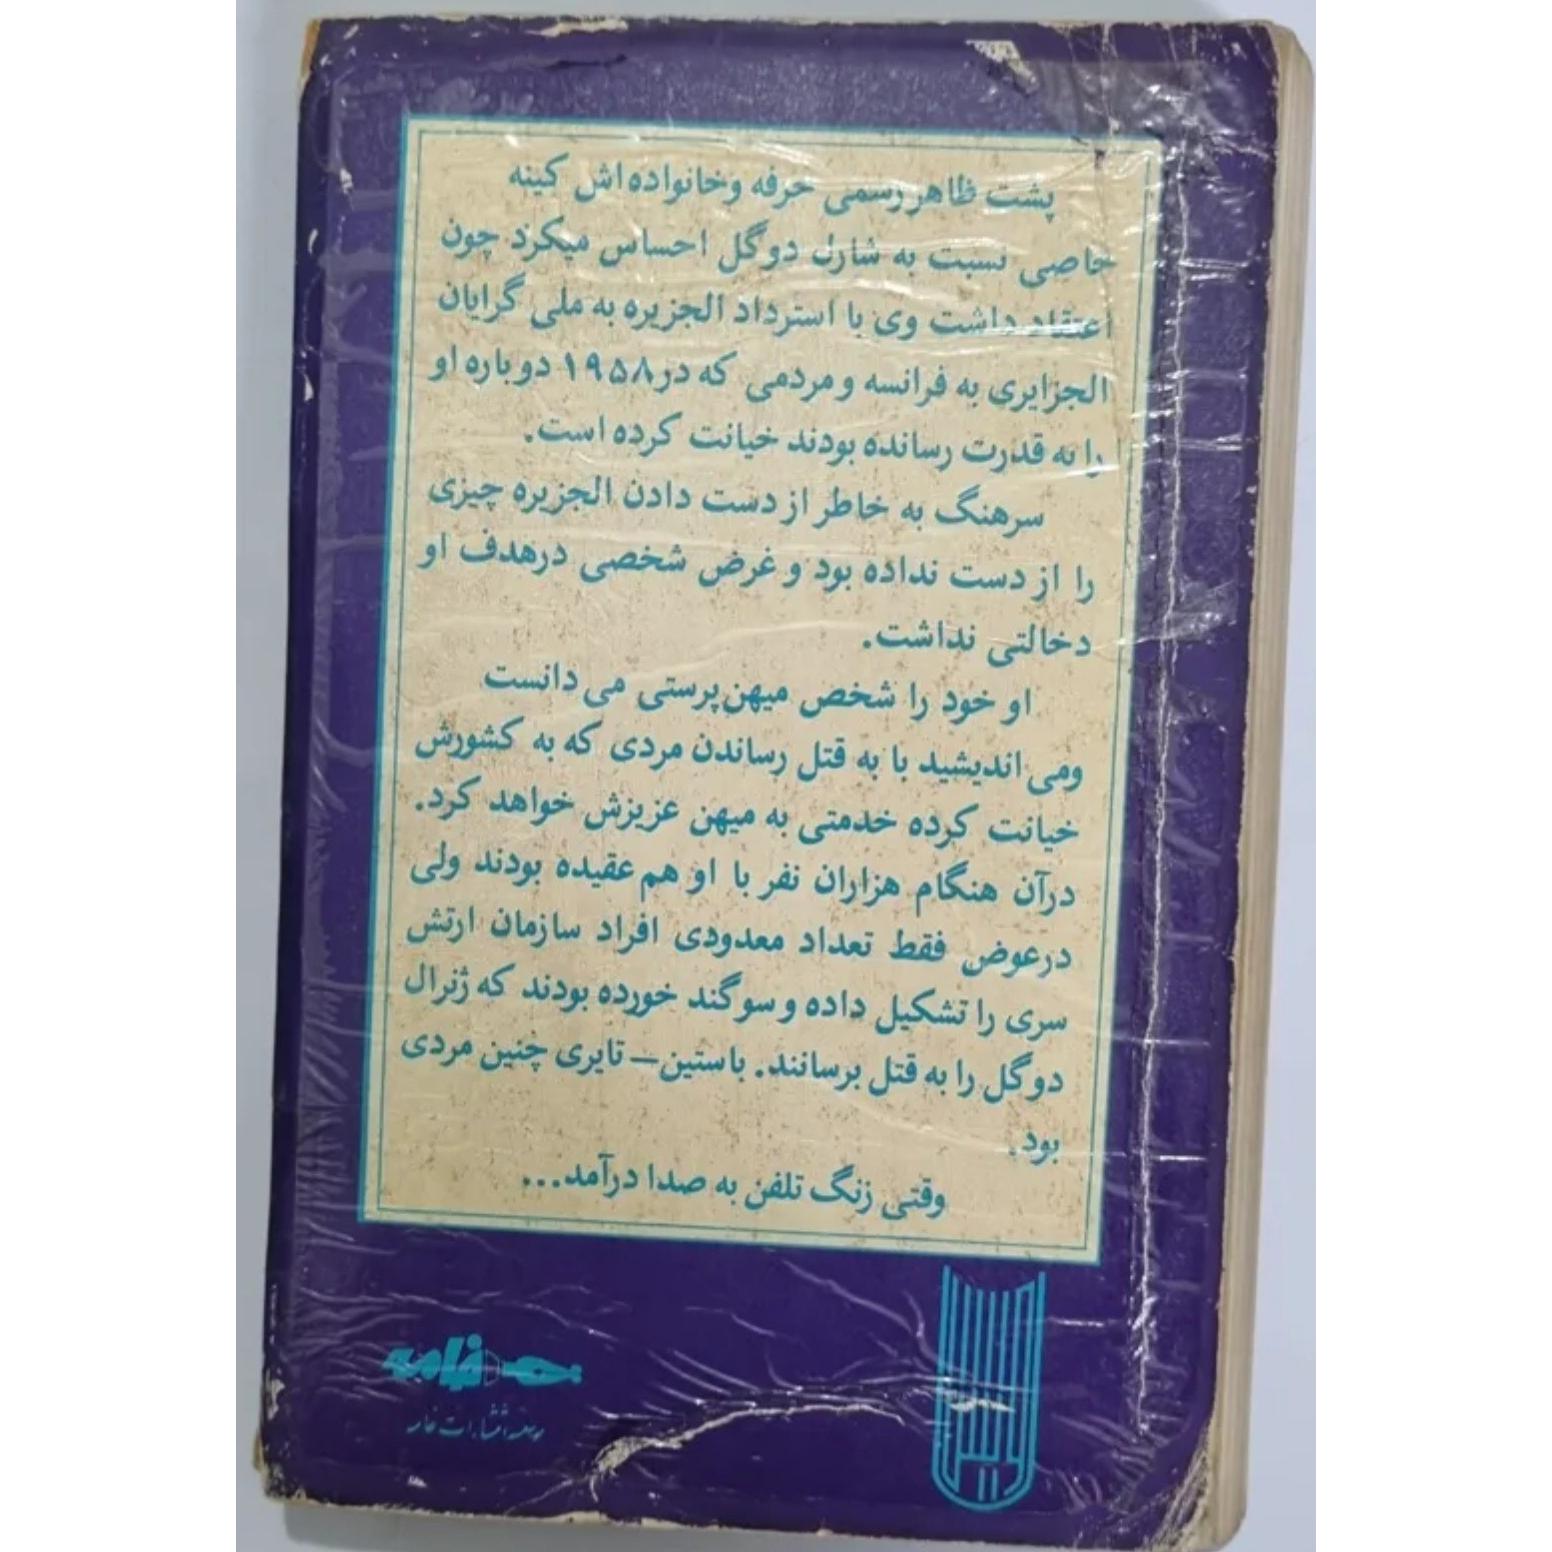 پشت ظاهر رسمی حرفه وخانواده‌اش کینه
خاصی نسبت به شارل دوگل احساس میکرد چون
اعتقاد داشت وی با استرداد الجزیره به ملی گرایان
الجزایری به فرانسه ومردمی که در ۱۹۵۸ دوباره او
را به قدرت رسانده بودند خیانت کرده است.
سرهنگ به خاطر از دست دادن الجزیره چیزی
را از دست نداده بود و غرض شخصی درهدف او
دخالتی نداشت.
او خود را شخص میهن‌پرستی می دانست
ومی اندیشید با به قتل رساندن مردی که به کشورش
خیانت کرده خدمتی به میهن عزیزش خواهد کرد.
درآن هنگام هزاران نفر با او هم عقیده بودند ولی
درعوض فقط تعداد معدودی افراد سازمان ارتش
سری را تشکیل داده و سوگند خورده بودند که ژنرال
دوگل را به قتل برسانند. باستین — تایری چنین مردی
بود.
وقتی زنگ تلفن به صدا درآمد...